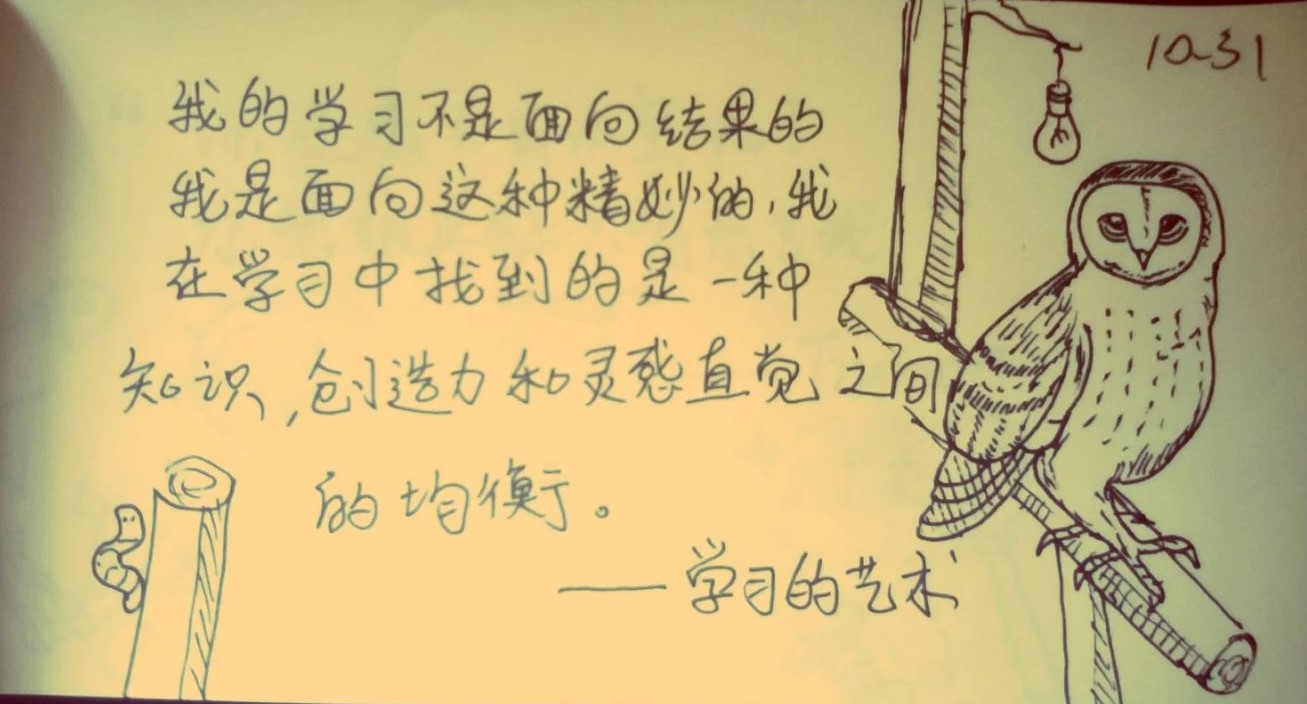 10-31
我的学习不是面向结果的
我是面向这种精妙的,我
在学习中找到的是一种
知识,创造力和灵感直觉之间
的均衡。
——学习的艺术